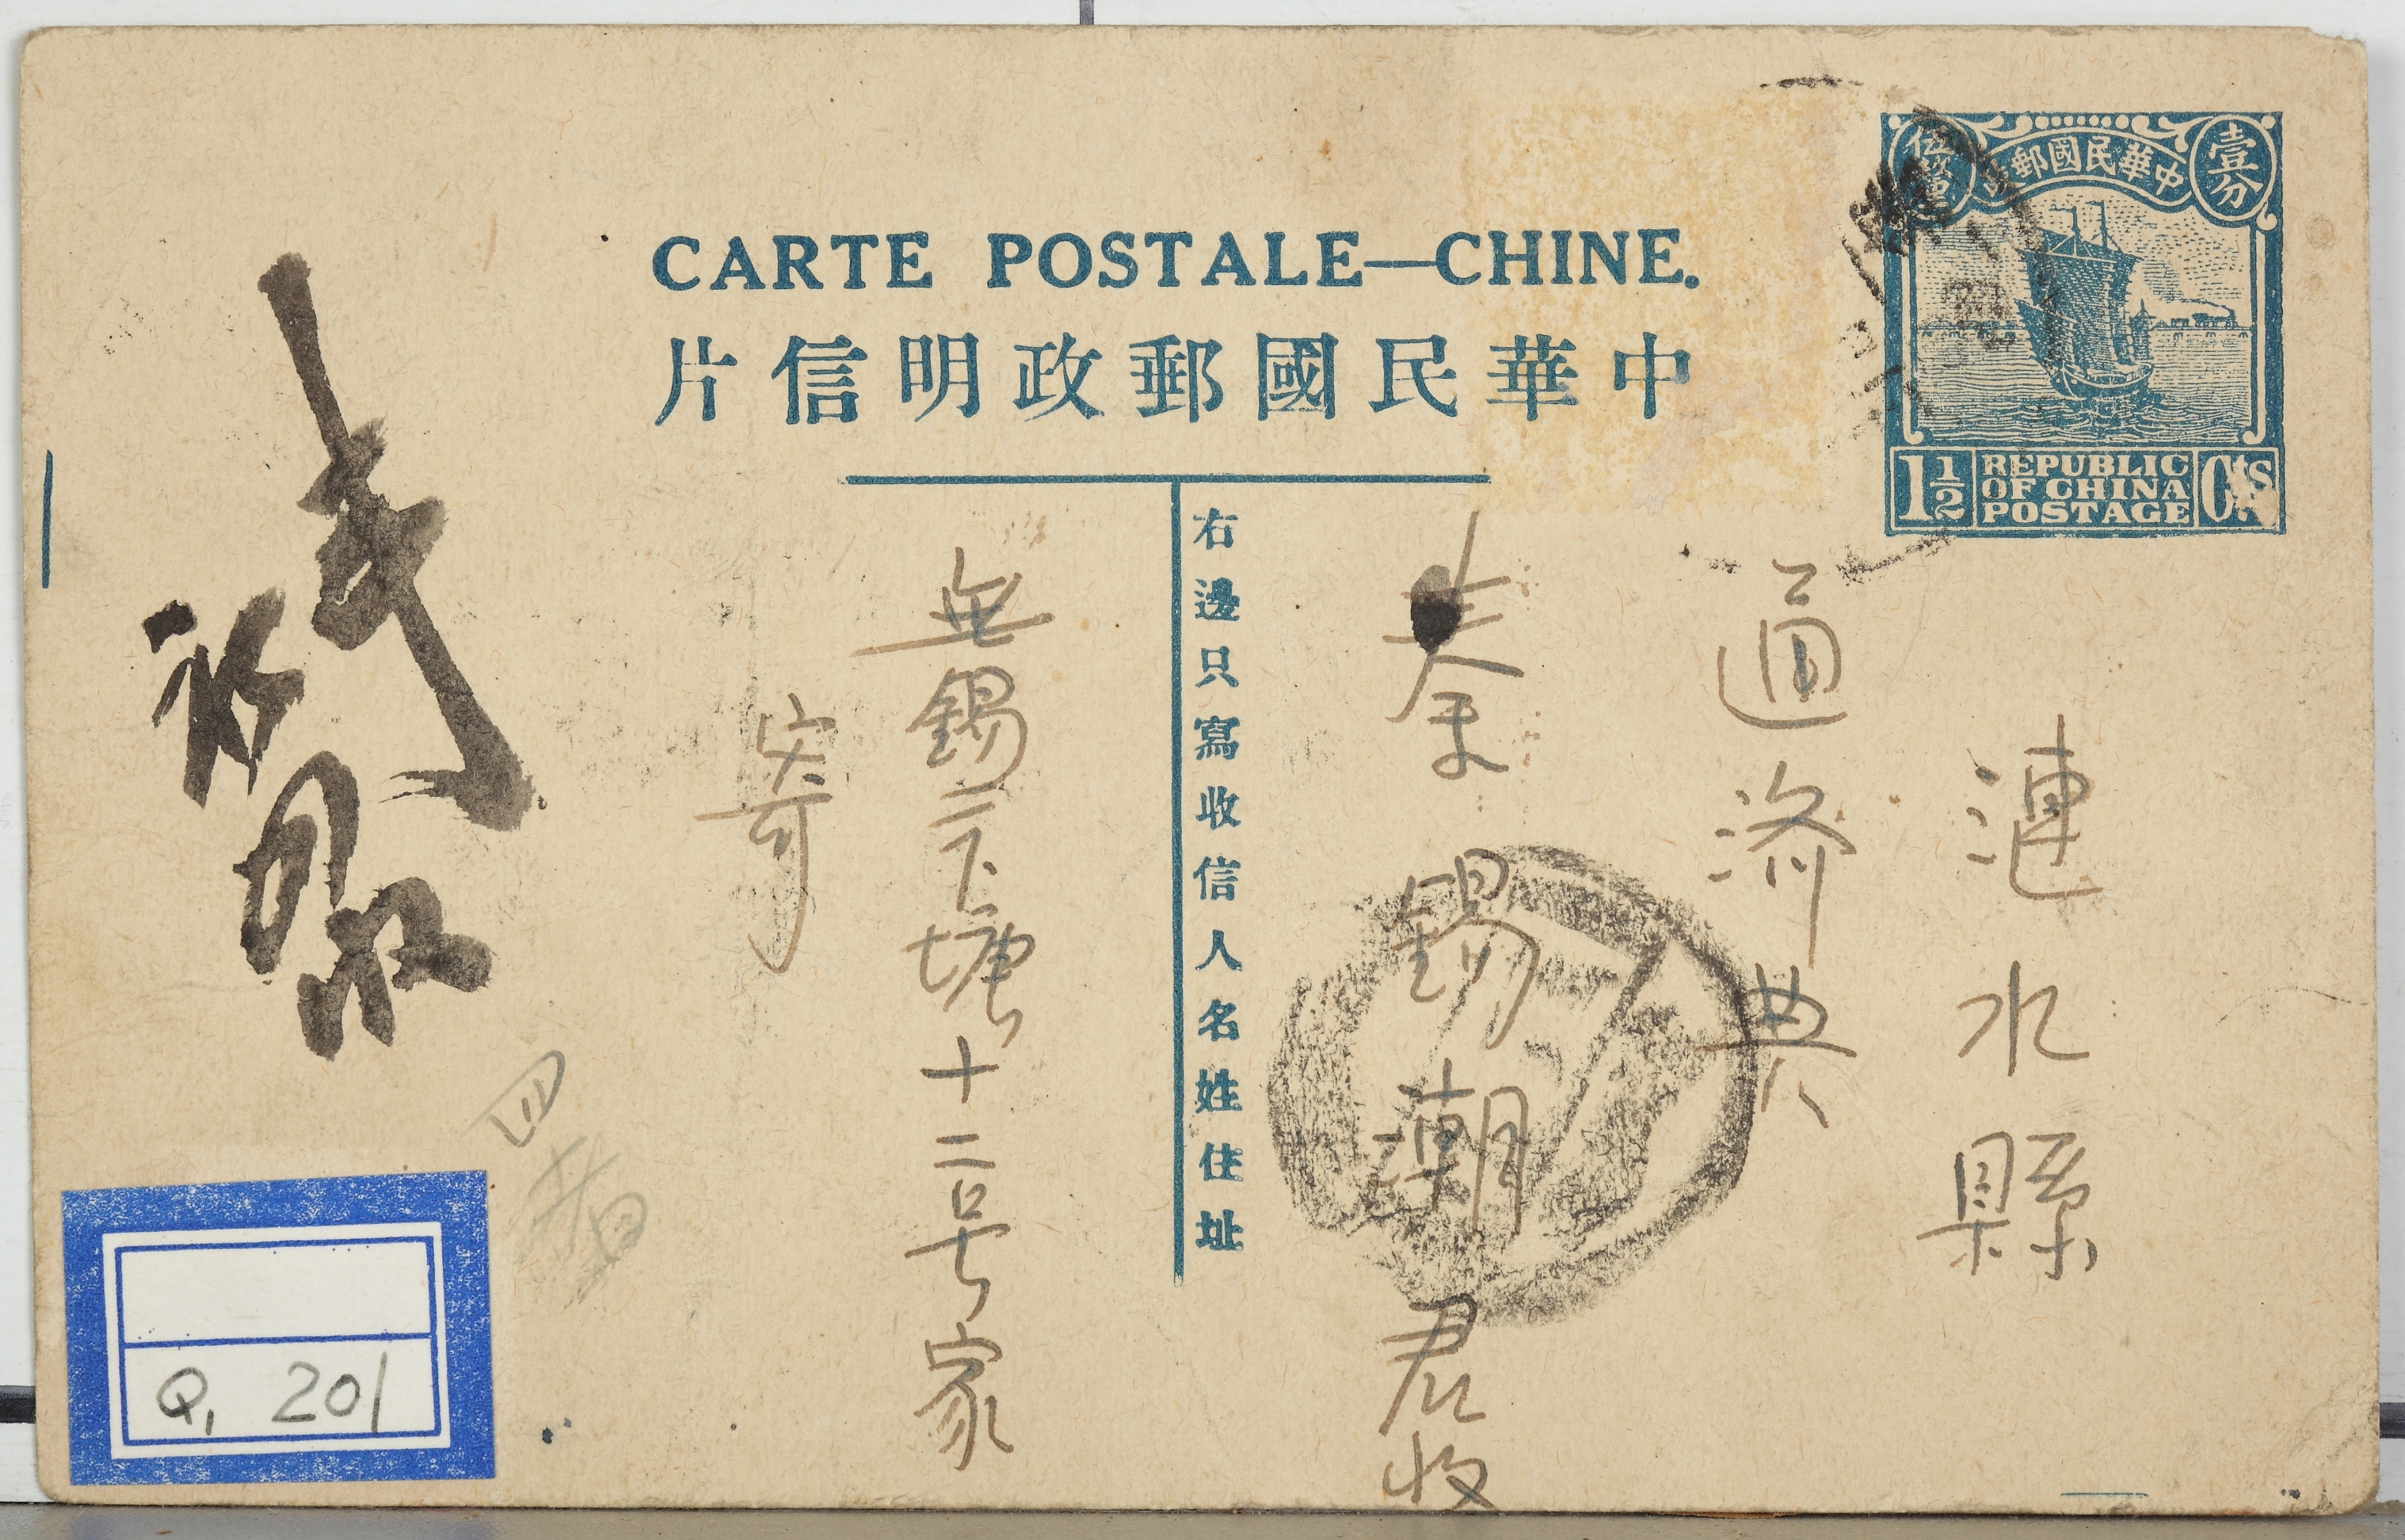 CARTE POSTALE—CHINE.
中華民國郵政明信片
壹分
中華民國郵政
伍釐
1½
REPUBLIC
OF CHINA
POSTAGE
CTS
漣水縣
通濟典
秦錫潮君收
右邊只寫收信人名姓住址
無錫三下塘十二号家
寄
四
Q, 201